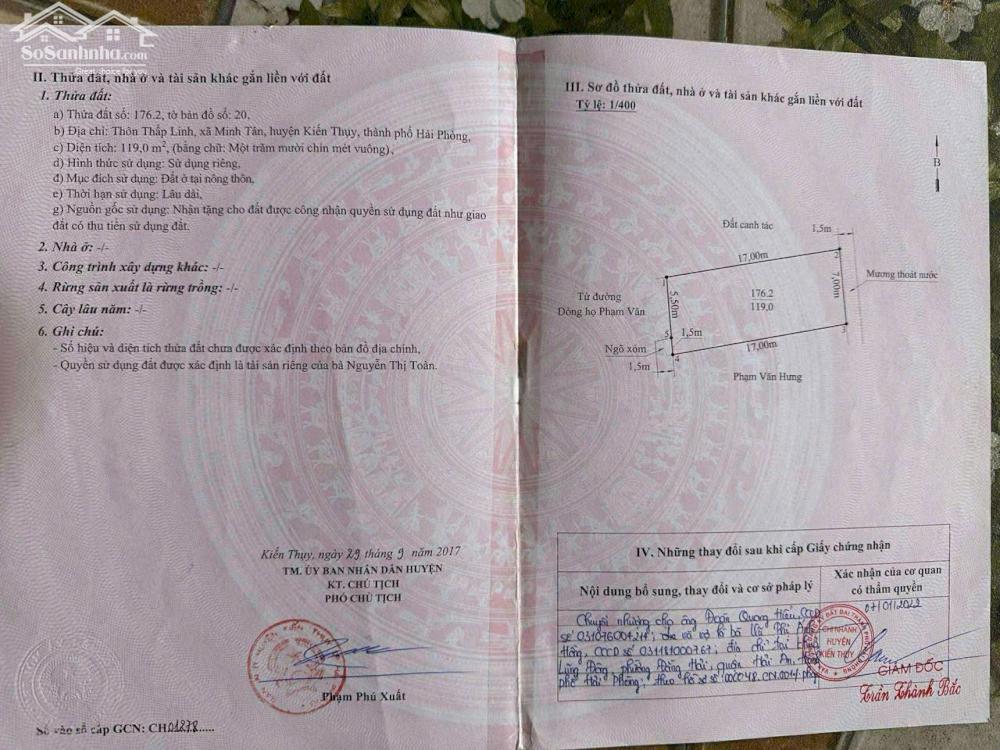 SoSanhnha.com
II. Thửa đất, nhà ở và tài sản khác gắn liền với đất
1. Thửa đất:
a) Thửa đất số: 176.2, tờ bản đồ số: 20,
b) Địa chỉ: Thôn Thấp Linh, xã Minh Tân, huyện Kiến Thụy, thành phố Hải Phòng,
c) Diện tích: 119,0 m², (bằng chữ: Một trăm mười chín mét vuông),
d) Hình thức sử dụng: Sử dụng riêng,
đ) Mục đích sử dụng: Đất ở tại nông thôn,
e) Thời hạn sử dụng: Lâu dài,
g) Nguồn gốc sử dụng: Nhận tặng cho đất được công nhận quyền sử dụng đất như giao
đất có thu tiền sử dụng đất.
2. Nhà ở: -/-
3. Công trình xây dựng khác: -/-
4. Rừng sản xuất là rừng trồng: -/-
5. Cây lâu năm: -/-
6. Ghi chú:
- Số hiệu và diện tích thửa đất chưa được xác định theo bản đồ địa chính,
- Quyền sử dụng đất được xác định là tài sản riêng của bà Nguyễn Thị Toản.
Kiến Thụy, ngày 29 tháng 9 năm 2017
TM. ỦY BAN NHÂN DÂN HUYỆN
KT. CHỦ TỊCH
PHÓ CHỦ TỊCH
Phạm Phú Xuất
Số vào sổ cấp GCN: CH01878.....
III. Sơ đồ thửa đất, nhà ở và tài sản khác gắn liền với đất
Tỷ lệ: 1/400
B
Đất canh tác
1,5m
17,00m
1
2
7,00m
Mương thoát nước
5,50m
176.2
119,0
Từ đường
Dòng họ Phạm Văn
5
1,5m
3
Ngõ xóm
4
17,00m
1,5m
Phạm Văn Hưng
IV. Những thay đổi sau khi cấp Giấy chứng nhận
Nội dung bổ sung, thay đổi và cơ sở pháp lý
Xác nhận của cơ quan
có thẩm quyền
07/01/2022
Chuyển nhượng cho ông Đoàn Quang Hiếu, CCCD
số và vợ là bà Vũ Thị
Hồng, CCCD số 031181000767; địa chỉ tại
Lũng Đông, phường Đằng Hải, quận Hải An,
phố Hải Phòng; theo hồ sơ số 000048.CN.001
CHI NHÁNH
HUYỆN
KIẾN THỤY
GIÁM ĐỐC
Trần Thành Bắc